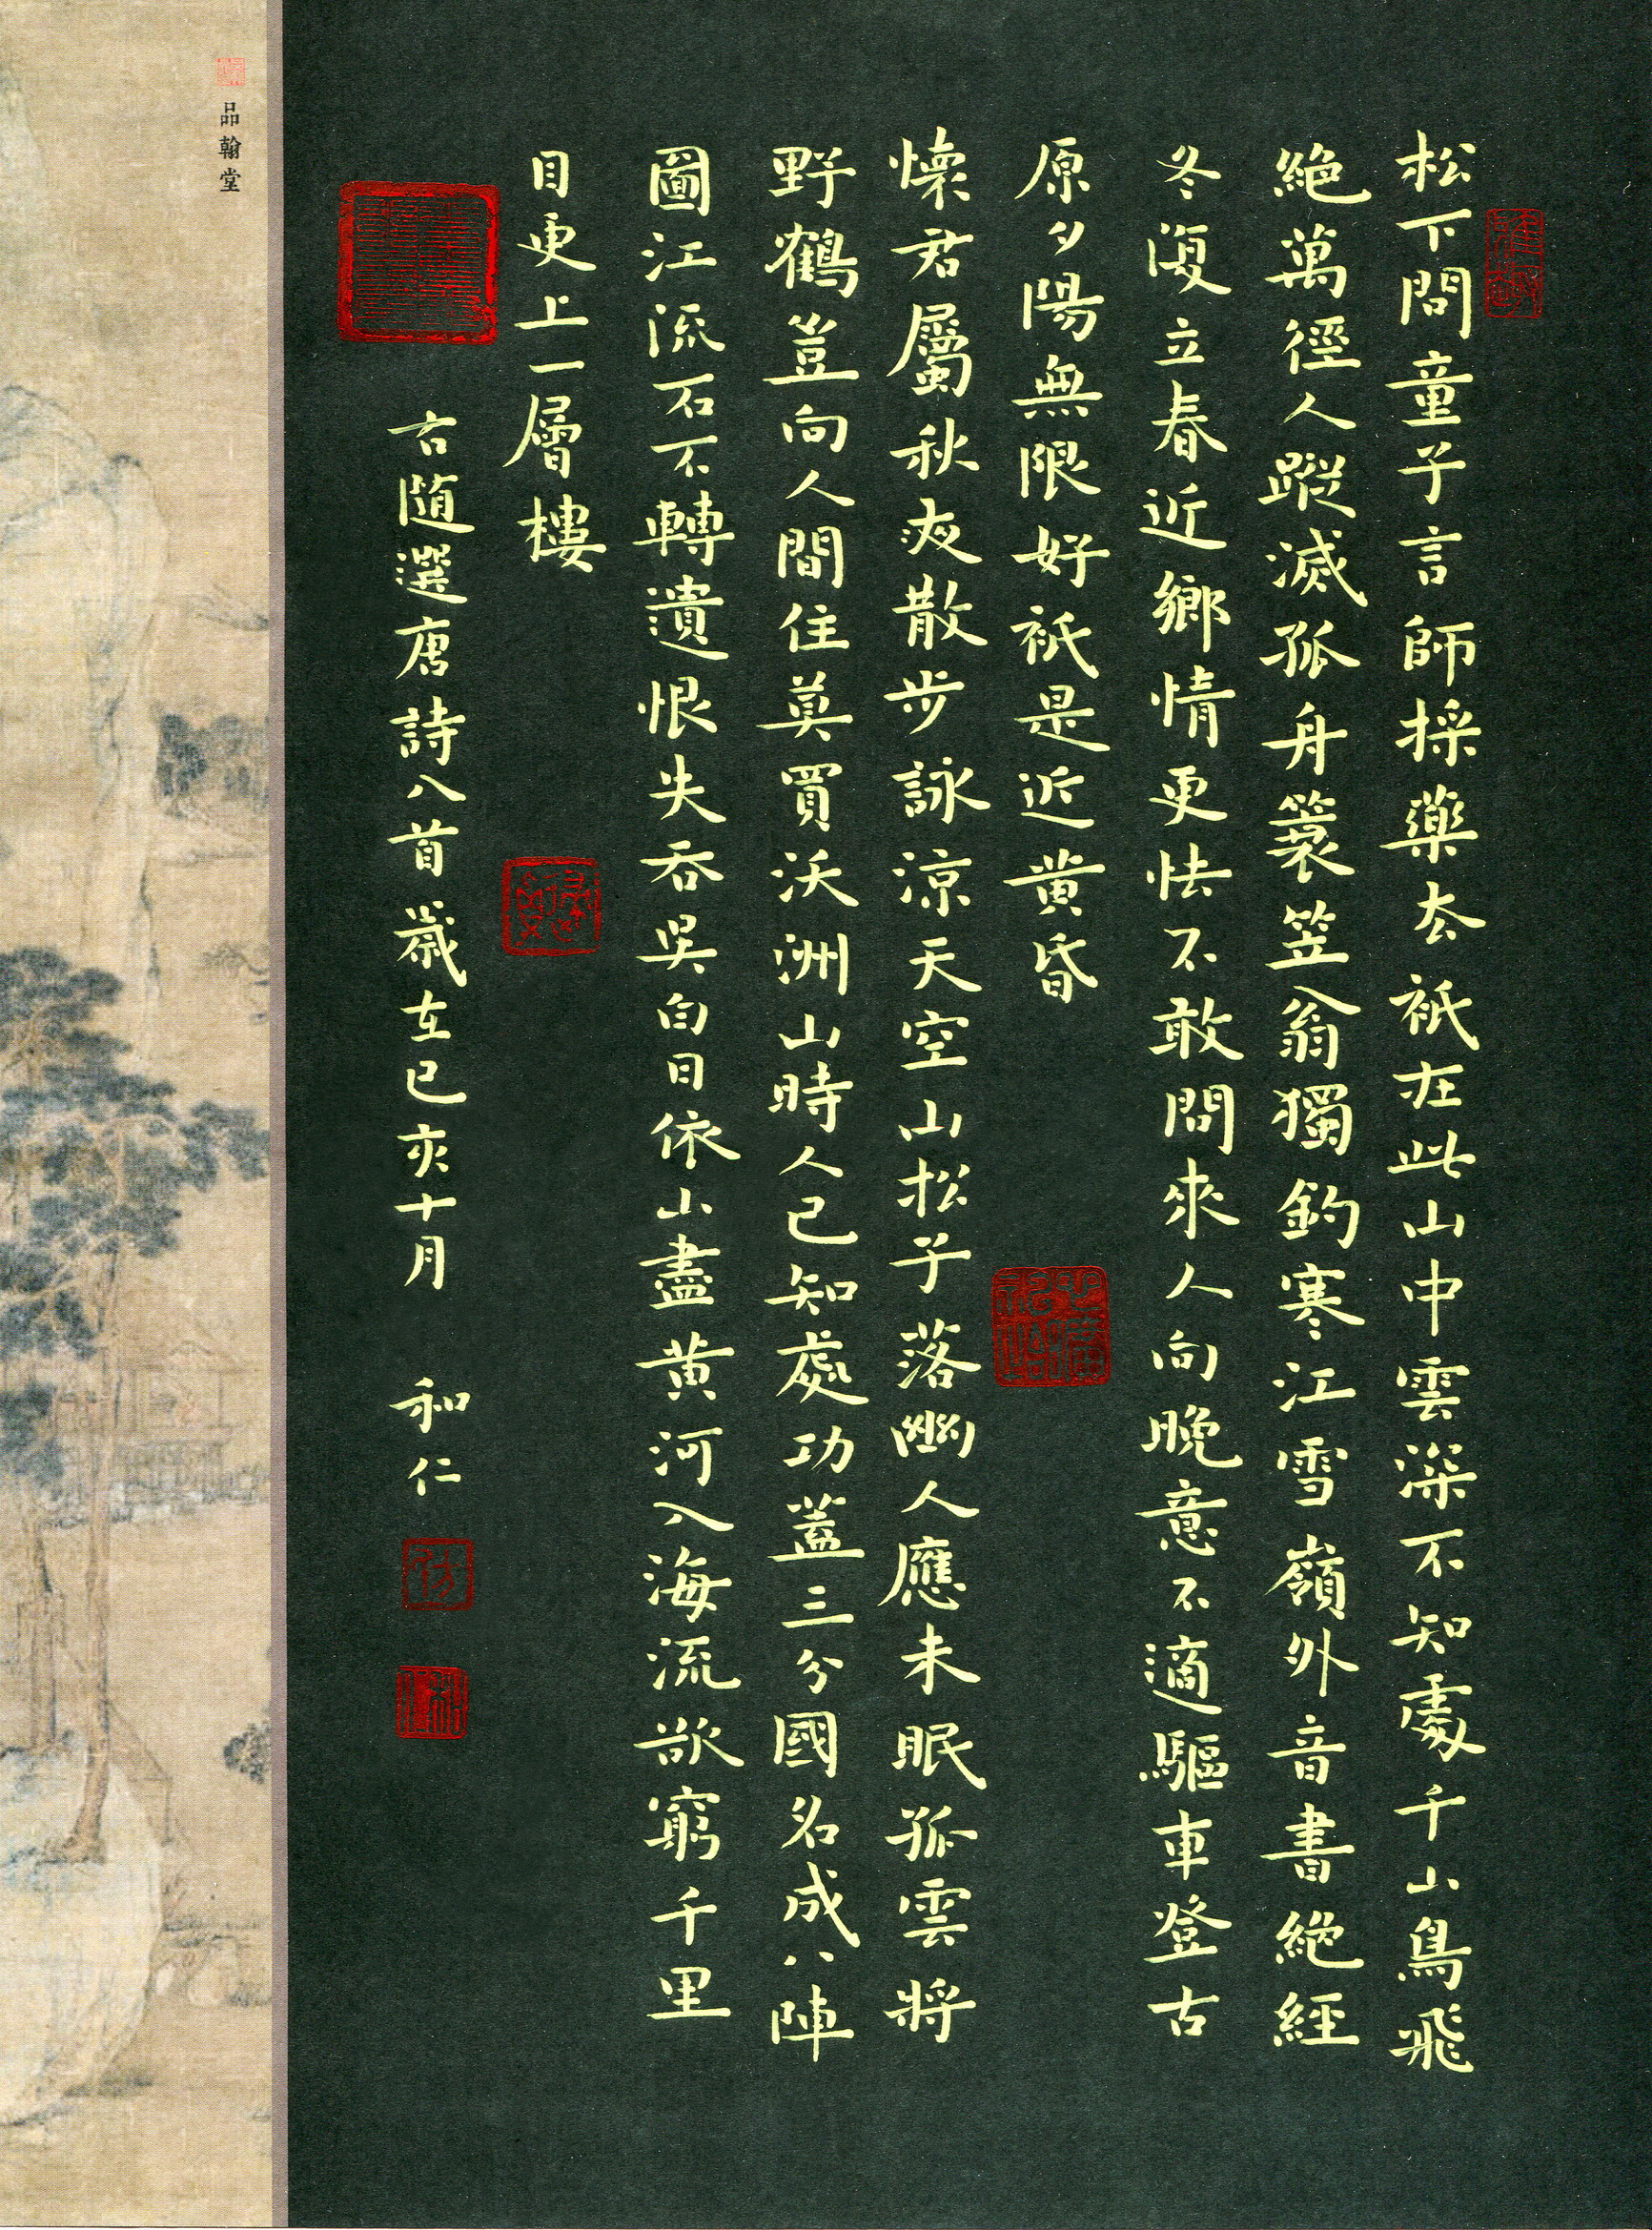 松下問童子言師採藥去祇在此山中雲深不知處千山鳥飛
絕萬徑人蹤滅孤舟簑笠翁獨釣寒江雪嶺外音書絕經
冬復立春近鄉情更怯不敢問來人向晚意不適驅車登古
原夕陽無限好祇是近黃昏
懷君屬秋夜散步詠涼天空山松子落幽人應未眠孤雲將
野鶴豈向人間住莫買沃洲山時人已知處功蓋三分國名成八陣
圖江流石不轉遺恨失吞吳白日依山盡黃河入海流欲窮千里
目更上一層樓
右隨選唐詩八首歲在己亥十月 和仁
品翰堂